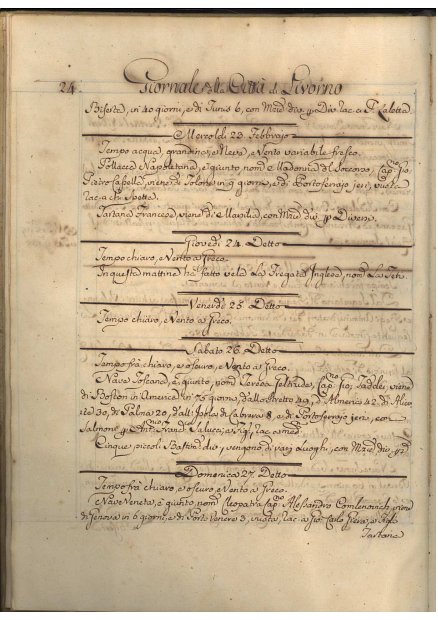 24. Giornale della Città di Livorno
Biserta, in 40 giorni, e di Tunis 6, con Merc.
Mercoldì 23 Febbrajo
Tempo acqua, grandine, e Neva, e Vento variabile fresco.
Pollacca Napoletana, è giunto, nom. Madonna del Soccorso, Cap.no Gio,
Pietro, viene di Tolone in 9 giorni, e di Portoferrajo jeri, vuota
rac. a chi spetta.
Tartana Francese, viene di Marsilia, con Merc. div. p Diversi.
Giovedì 24. Detto
Tempo chiaro, e Vento a Greco.
In questa mattina ha fatto vela La Fregata Inglese, nom.
Venerdì 25 Detto
Tempo chiaro, e Vento a Greco.
Sabato 26. Detto
Tempo frà chiaro, e oscuro, e Vento a Greco.
Nave Toscana, è giunto, nom. Teresa, Cap.no Gio, viene
di Boston in America in 76 giorni, dallo Stretto 49, d'Almeria 42. di Alicante
30, di Palma 20, dall' Isola di Cabrera 8, e di Portoferrajo jeri, con
Salmone
Cinque, piccoli Bastim. div. vengono di varj Luoghi, con Merc. div.
Domenica 27. Detto
Tempo frà chiaro, e oscuro, e Vento a Greco.
Nave Veneta, è giunto, nom. Cleopatra, Cap. Alessandro, viene
di Genova in 6 giorni, e di Porto Venere 3, vuota, rac. a Gio. Carlo
Tartana